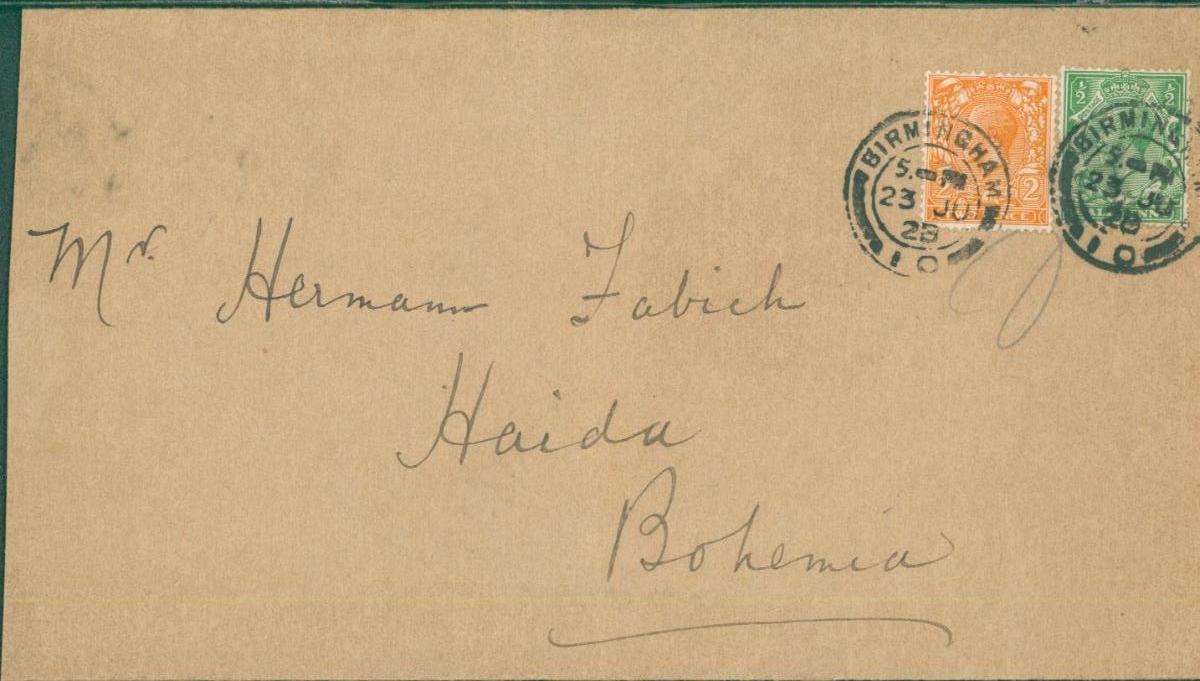 ½ ½
BIRMINGHAM
5.- PM
23 JU
2B
10
2 2
BIRMING
5.- PM
23 JU
2B
10
Mr. Hermann Fabich
Haida
Bohemia